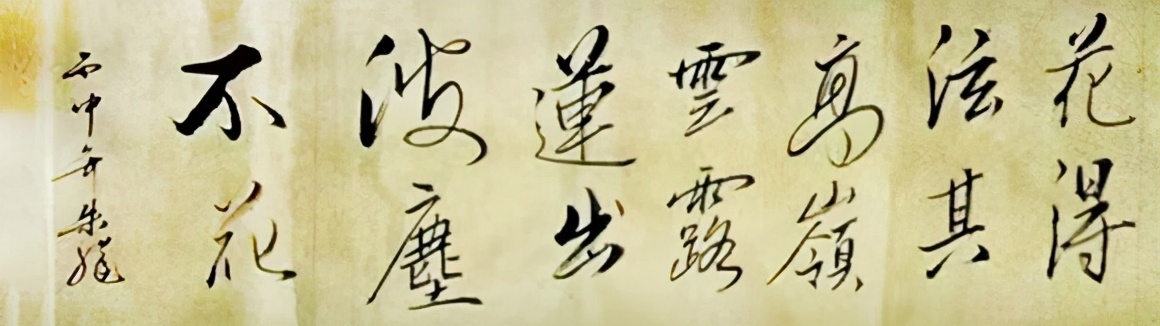 花得
泫其
高嶺
雲露
蓮出
波塵
不花
丙申年朱